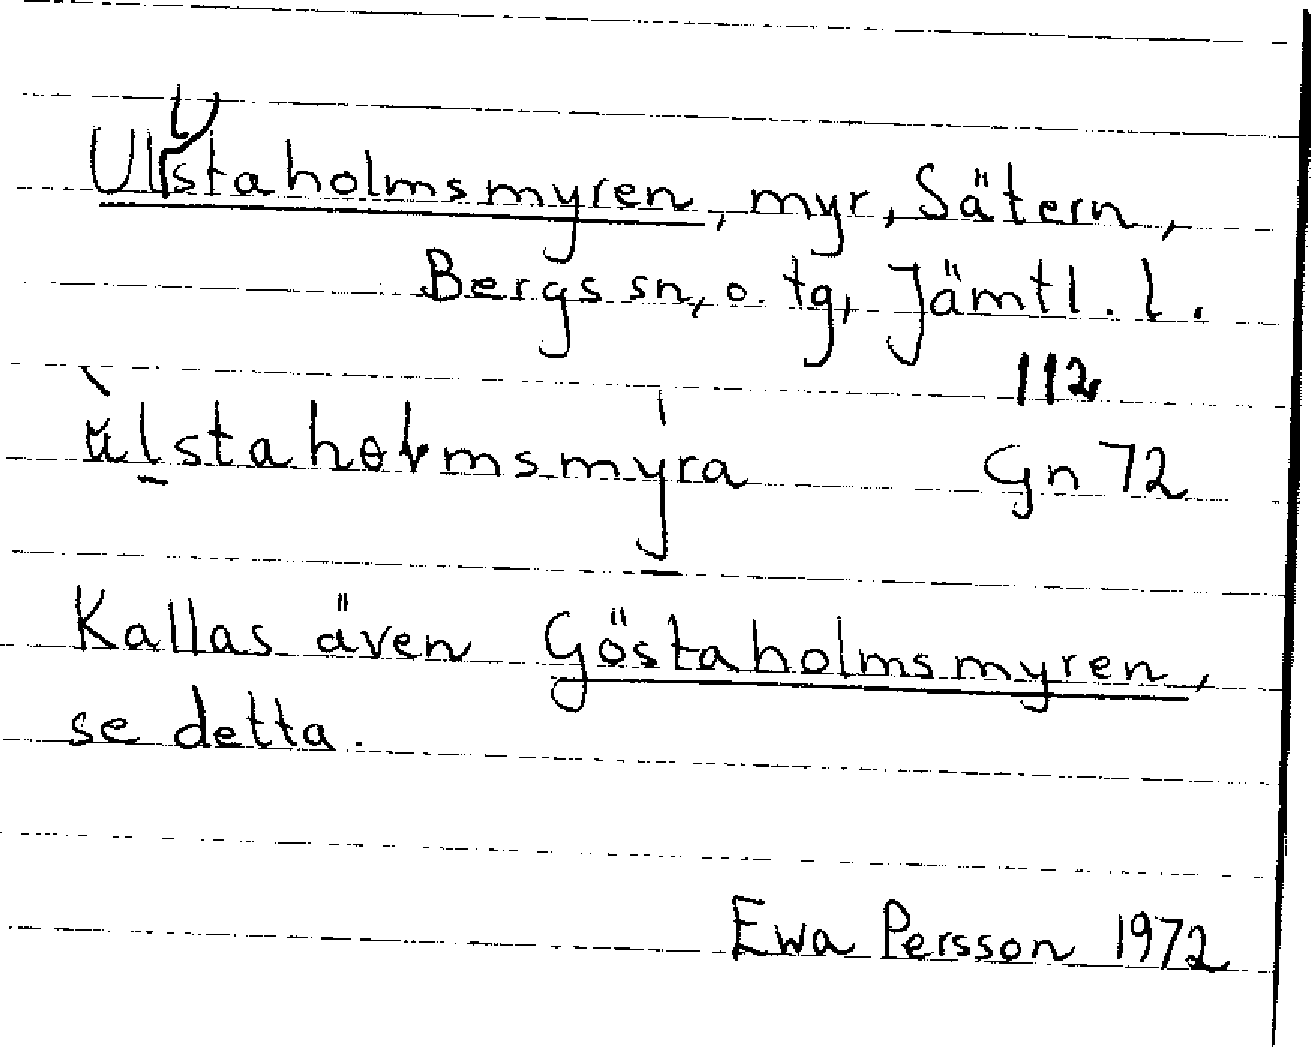 Ultstaholmsmyren, myr, Sätern,
Bergs sn, o. tg, Jämtl. l.
112
ùl̠staholmsmyra Gn 72
Kallas även Göstaholmsmyren,
se detta.
Ewa Persson 1972